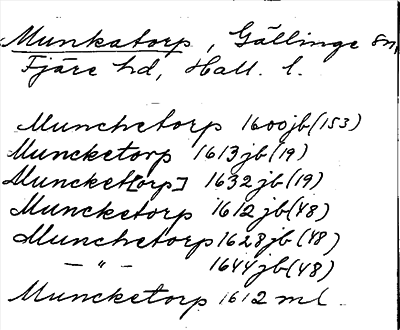 Munkatorp, Gällinge sn,
Fjäre hd, Hall. l.
Munchetorp 1600jb(153)
Muncketorp 1613jb(19)
Muncket[orp] 1632jb(19)
Muncketorp 1612jb(48)
Munchetorp 1628jb(48)
— " — 1644jb(48)
Muncketorp 1612 ml